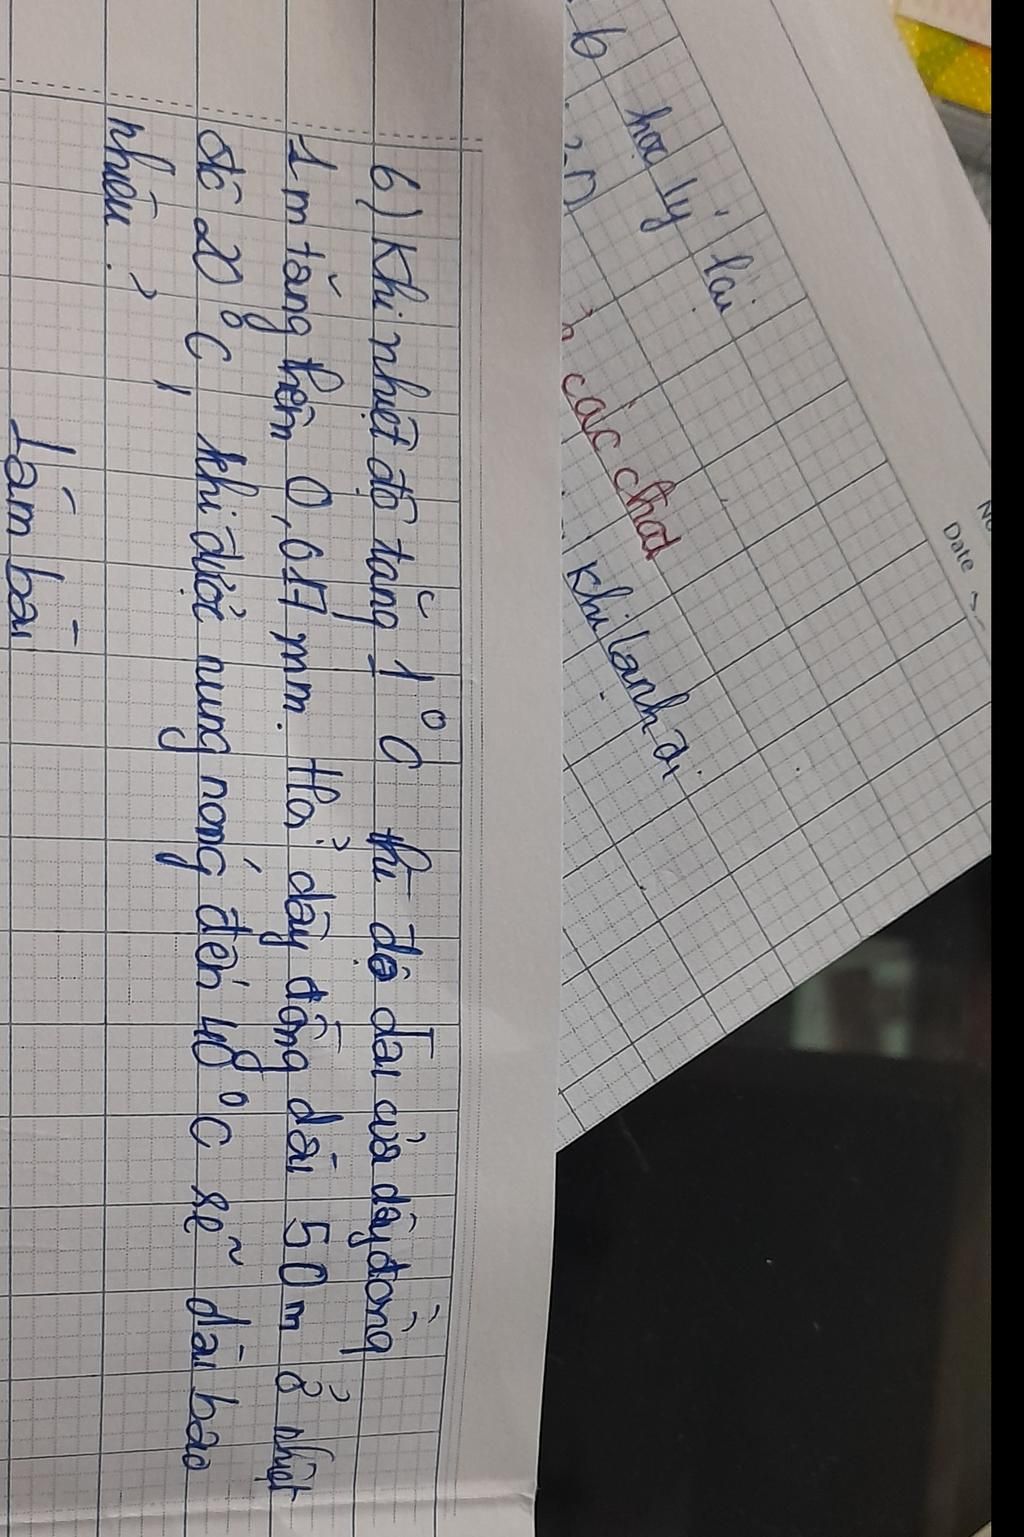 b học lý lại
các chất khi lạnh đi
No
Date
6) Khi nhiệt độ tăng 1°C thì độ dài của dây đồng
1m tăng thêm 0,017mm. Hỏi dây đồng dài 50m ở nhiệt
độ 20°C, khi được nung nóng đến 40°C sẽ dài bao
nhiêu?
Làm bài